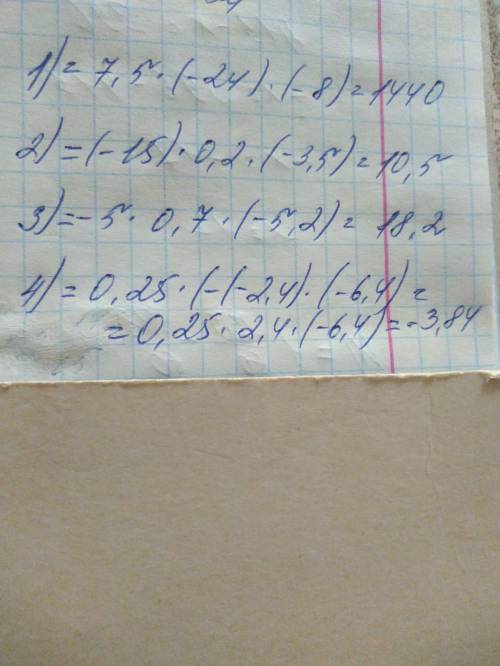 1) = 7,5 · (-24) · (-8) = 1440
2) = (-15) · 0,2 · (-3,5) = 10,5
3) = -5 · 0,7 · (-5,2) = 18,2
4) = 0,25 · (-(-2,4) · (-6,4) =
= 0,25 · 2,4 · (-6,4) = -3,84